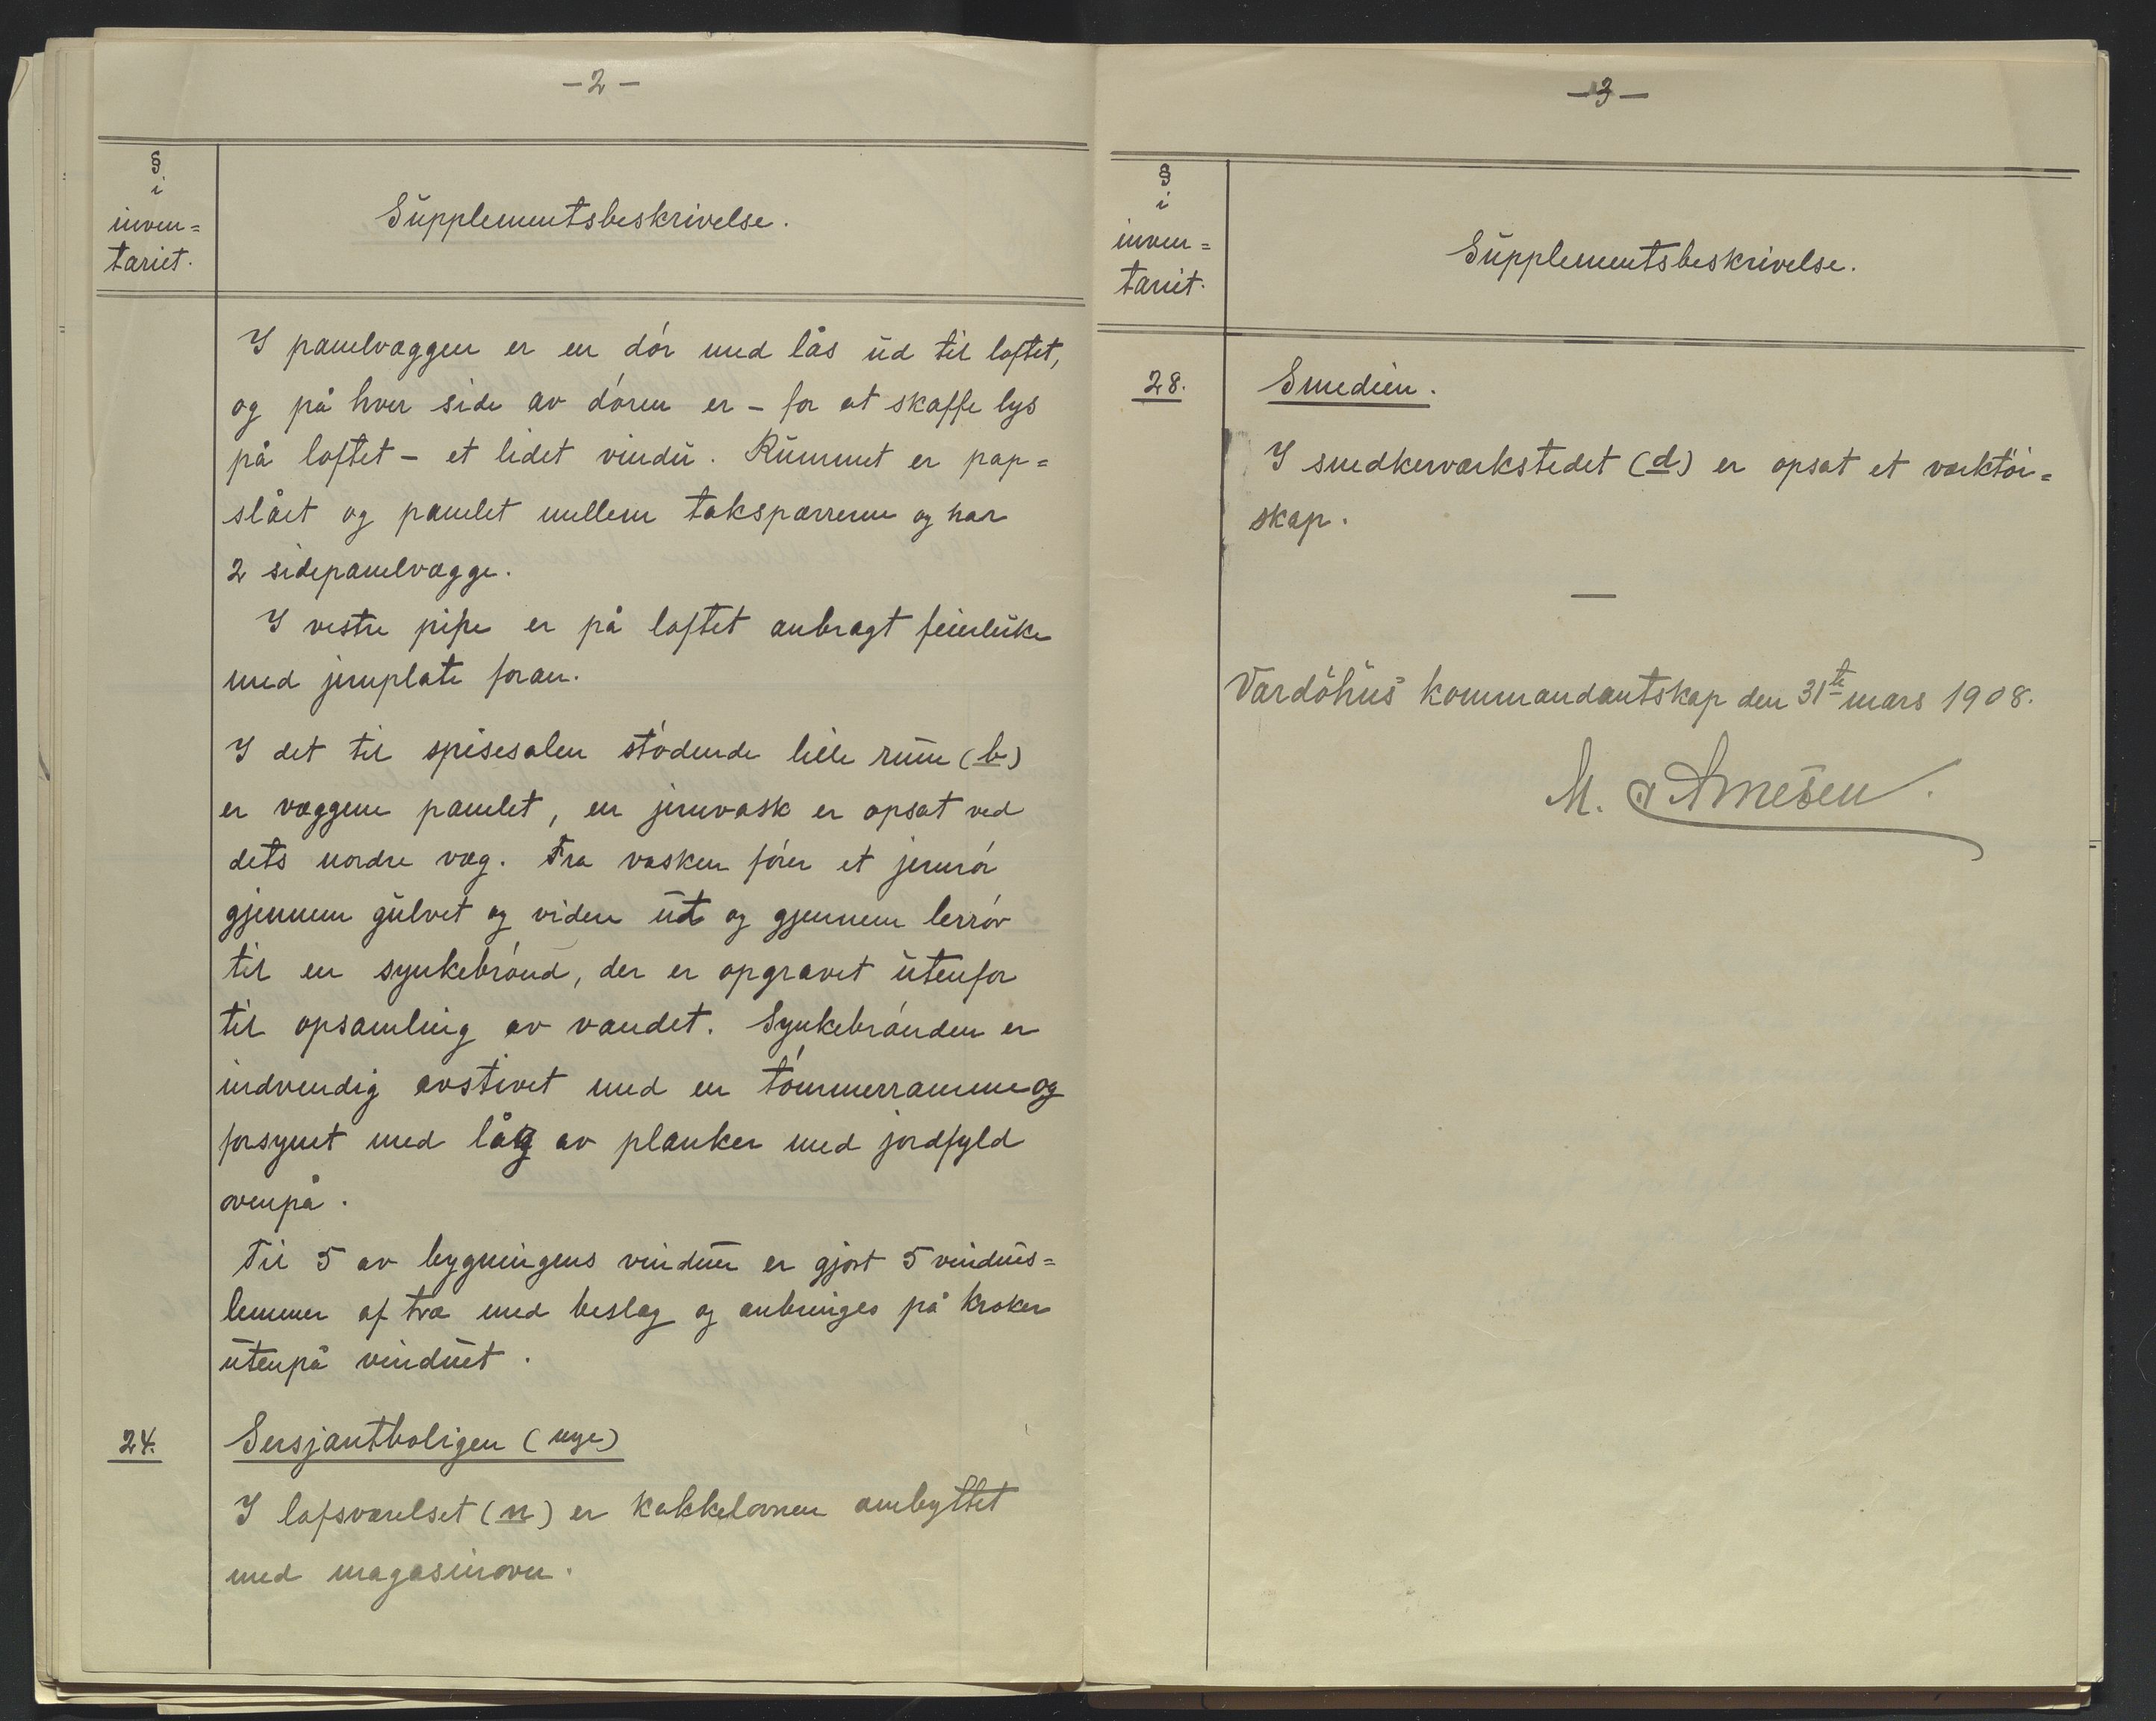 - 2 -
§
i
inven=
tariet.
Supplementsbeskrivelse.
I panelvæggen er en dór med lås ud til loftet,
og på hver side av dóren er – for at skaffe lys
på loftet – et lidet vindu. Rummet er pap=
slået og panelet mellem taksparrerne og har
2 sidepanelvægge.
I vestre pipe er på loftet anbragt feieluke
med jernplate foran.
I det til spisesalen stódende lille rum (b)
er væggene panelet, en jernvask er opsat ved
dets nordre væg. Fra vasken fórer et jernrór
gjennem gulvet og videre ut og gjennem lerrór
til en synkebrónd, der er opgravet utenfor
til opsamling av vandet. Synkebrónden er
indvendig avstivet med en tómmerramme og
forsynet med låg av planker med jordfyld
ovenpå.
Til 5 av bygningens vinduer er gjort 5 vindus=
lemmer af træ med beslag og anbringes på kroker
utenpå vinduet.
24.
Sersjantboligen (nye)
I lofsværelset (n) er kakkelovnen ombyttet
med magasinovn.
- 3 -
§
i
inven=
tariet.
Supplementsbeskrivelse.
28.
Smedien.
I snedkerværkstedet (d) er opsat et værktöi=
skap.
—
Vardöhus kommandantskap den 31te mars 1908.
M. Arnesen.